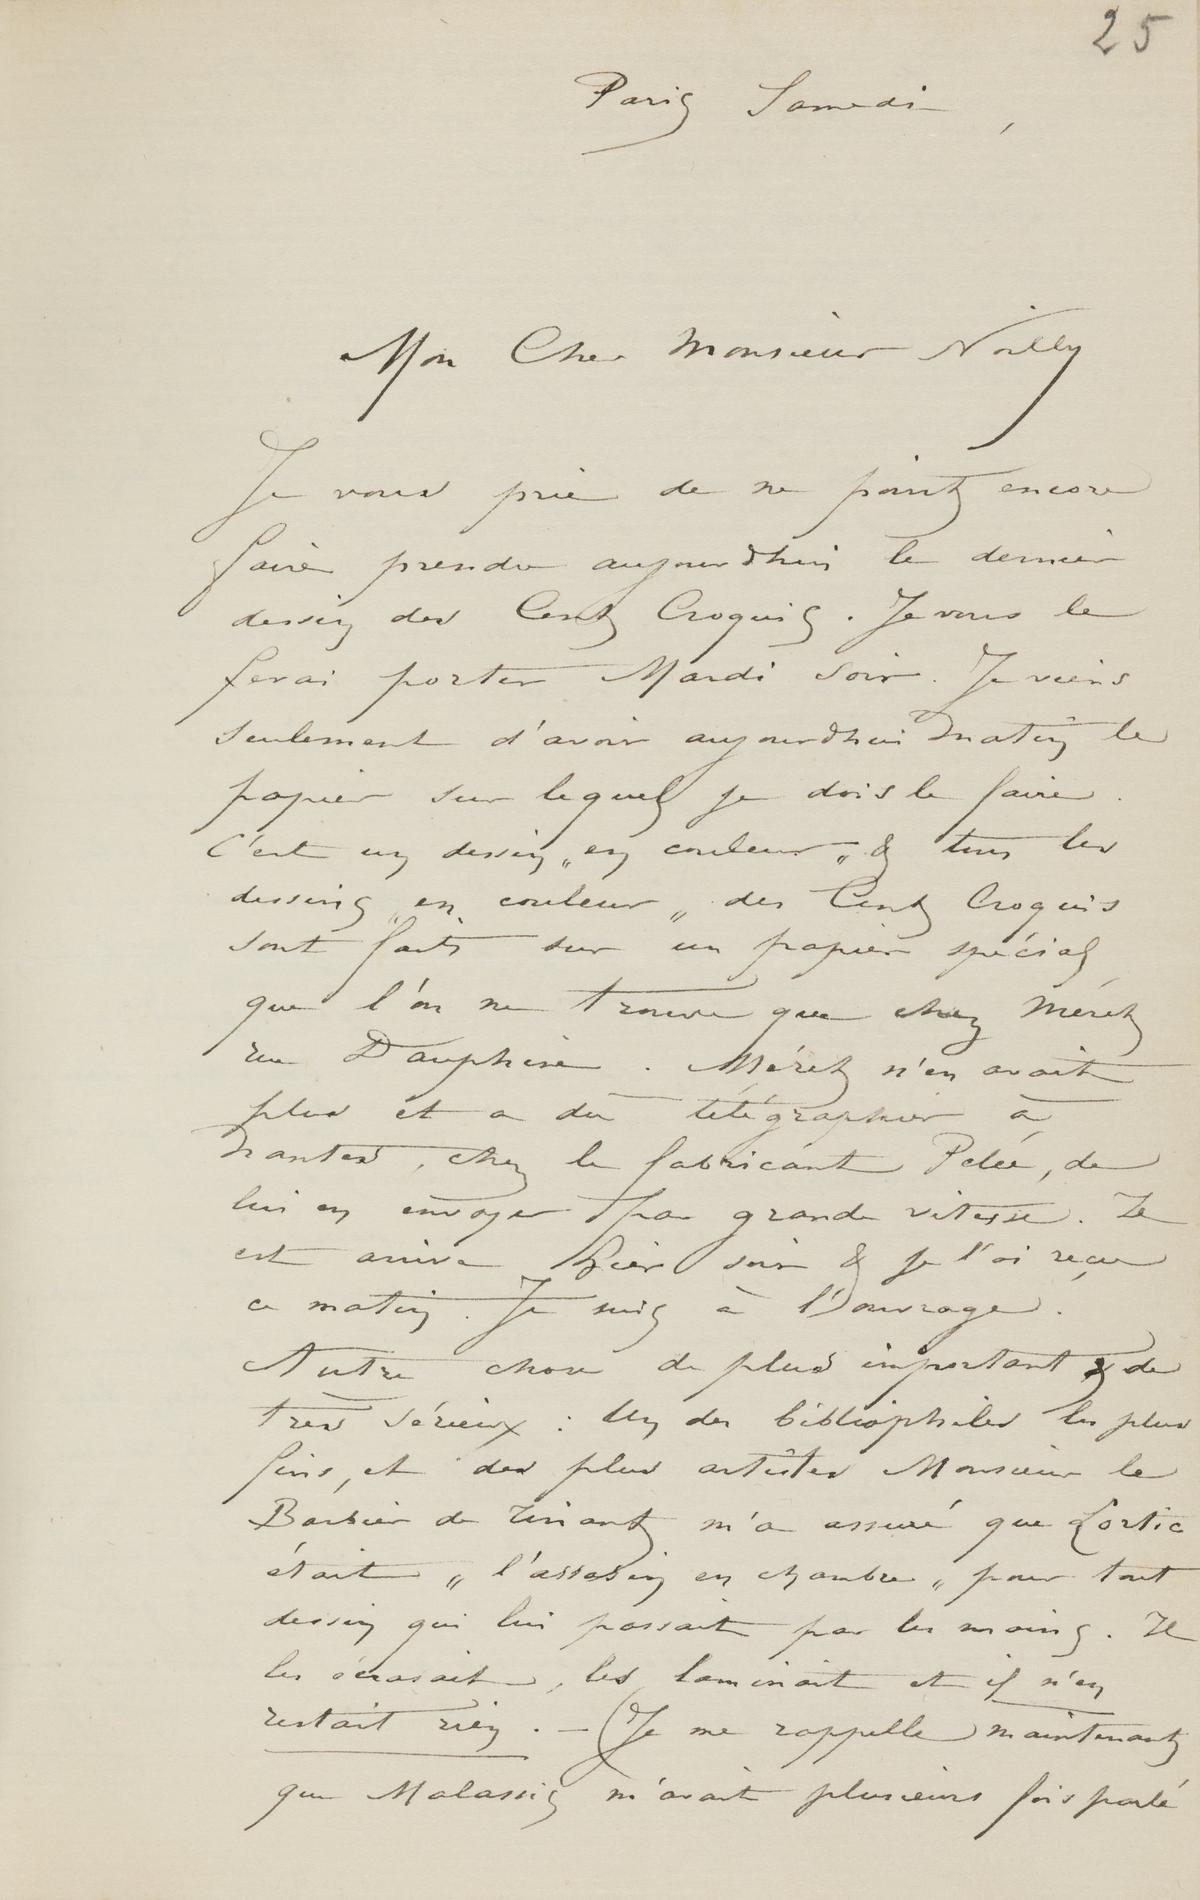 25
Paris Samedi
Mon Cher Monsieur Noilly
Je vous prie de ne point encore
faire prendre aujourdhui le dernier
dessin des Cent Croquis. Je vous le
ferai porter Mardi soir. Je viens
seulement d'avoir aujourdhui matin le
papier sur lequel je dois le faire.
C'est un dessin „en couleur„ & tous les
dessins „en couleur„ des Cent Croquis
sont faits sur un papier spécial
que l'on ne trouve que chez Méret
rue Dauphine. Méret n'en avait
plus et a du télégraphier à
Nantes, chez le fabricant Pelée, de
lui en envoyer par grande vitesse. Il
est arrivé hier soir & je l'ai reçu
ce matin. Je suis à l'ouvrage.
Autre chose de plus important & de
très sérieux : Un des bibliophiles les plus
fins, et des plus artistes Monsieur le
Barbier de Tinant m'a assuré que Lortic
était „l'assassin en chambre„ pour tout
dessin qui lui passait par les mains. Il
les écrasait, les laminait et il n'en
restait rien. — (Je me rappelle maintenant
que Malassis m'avait plusieurs fois parlé